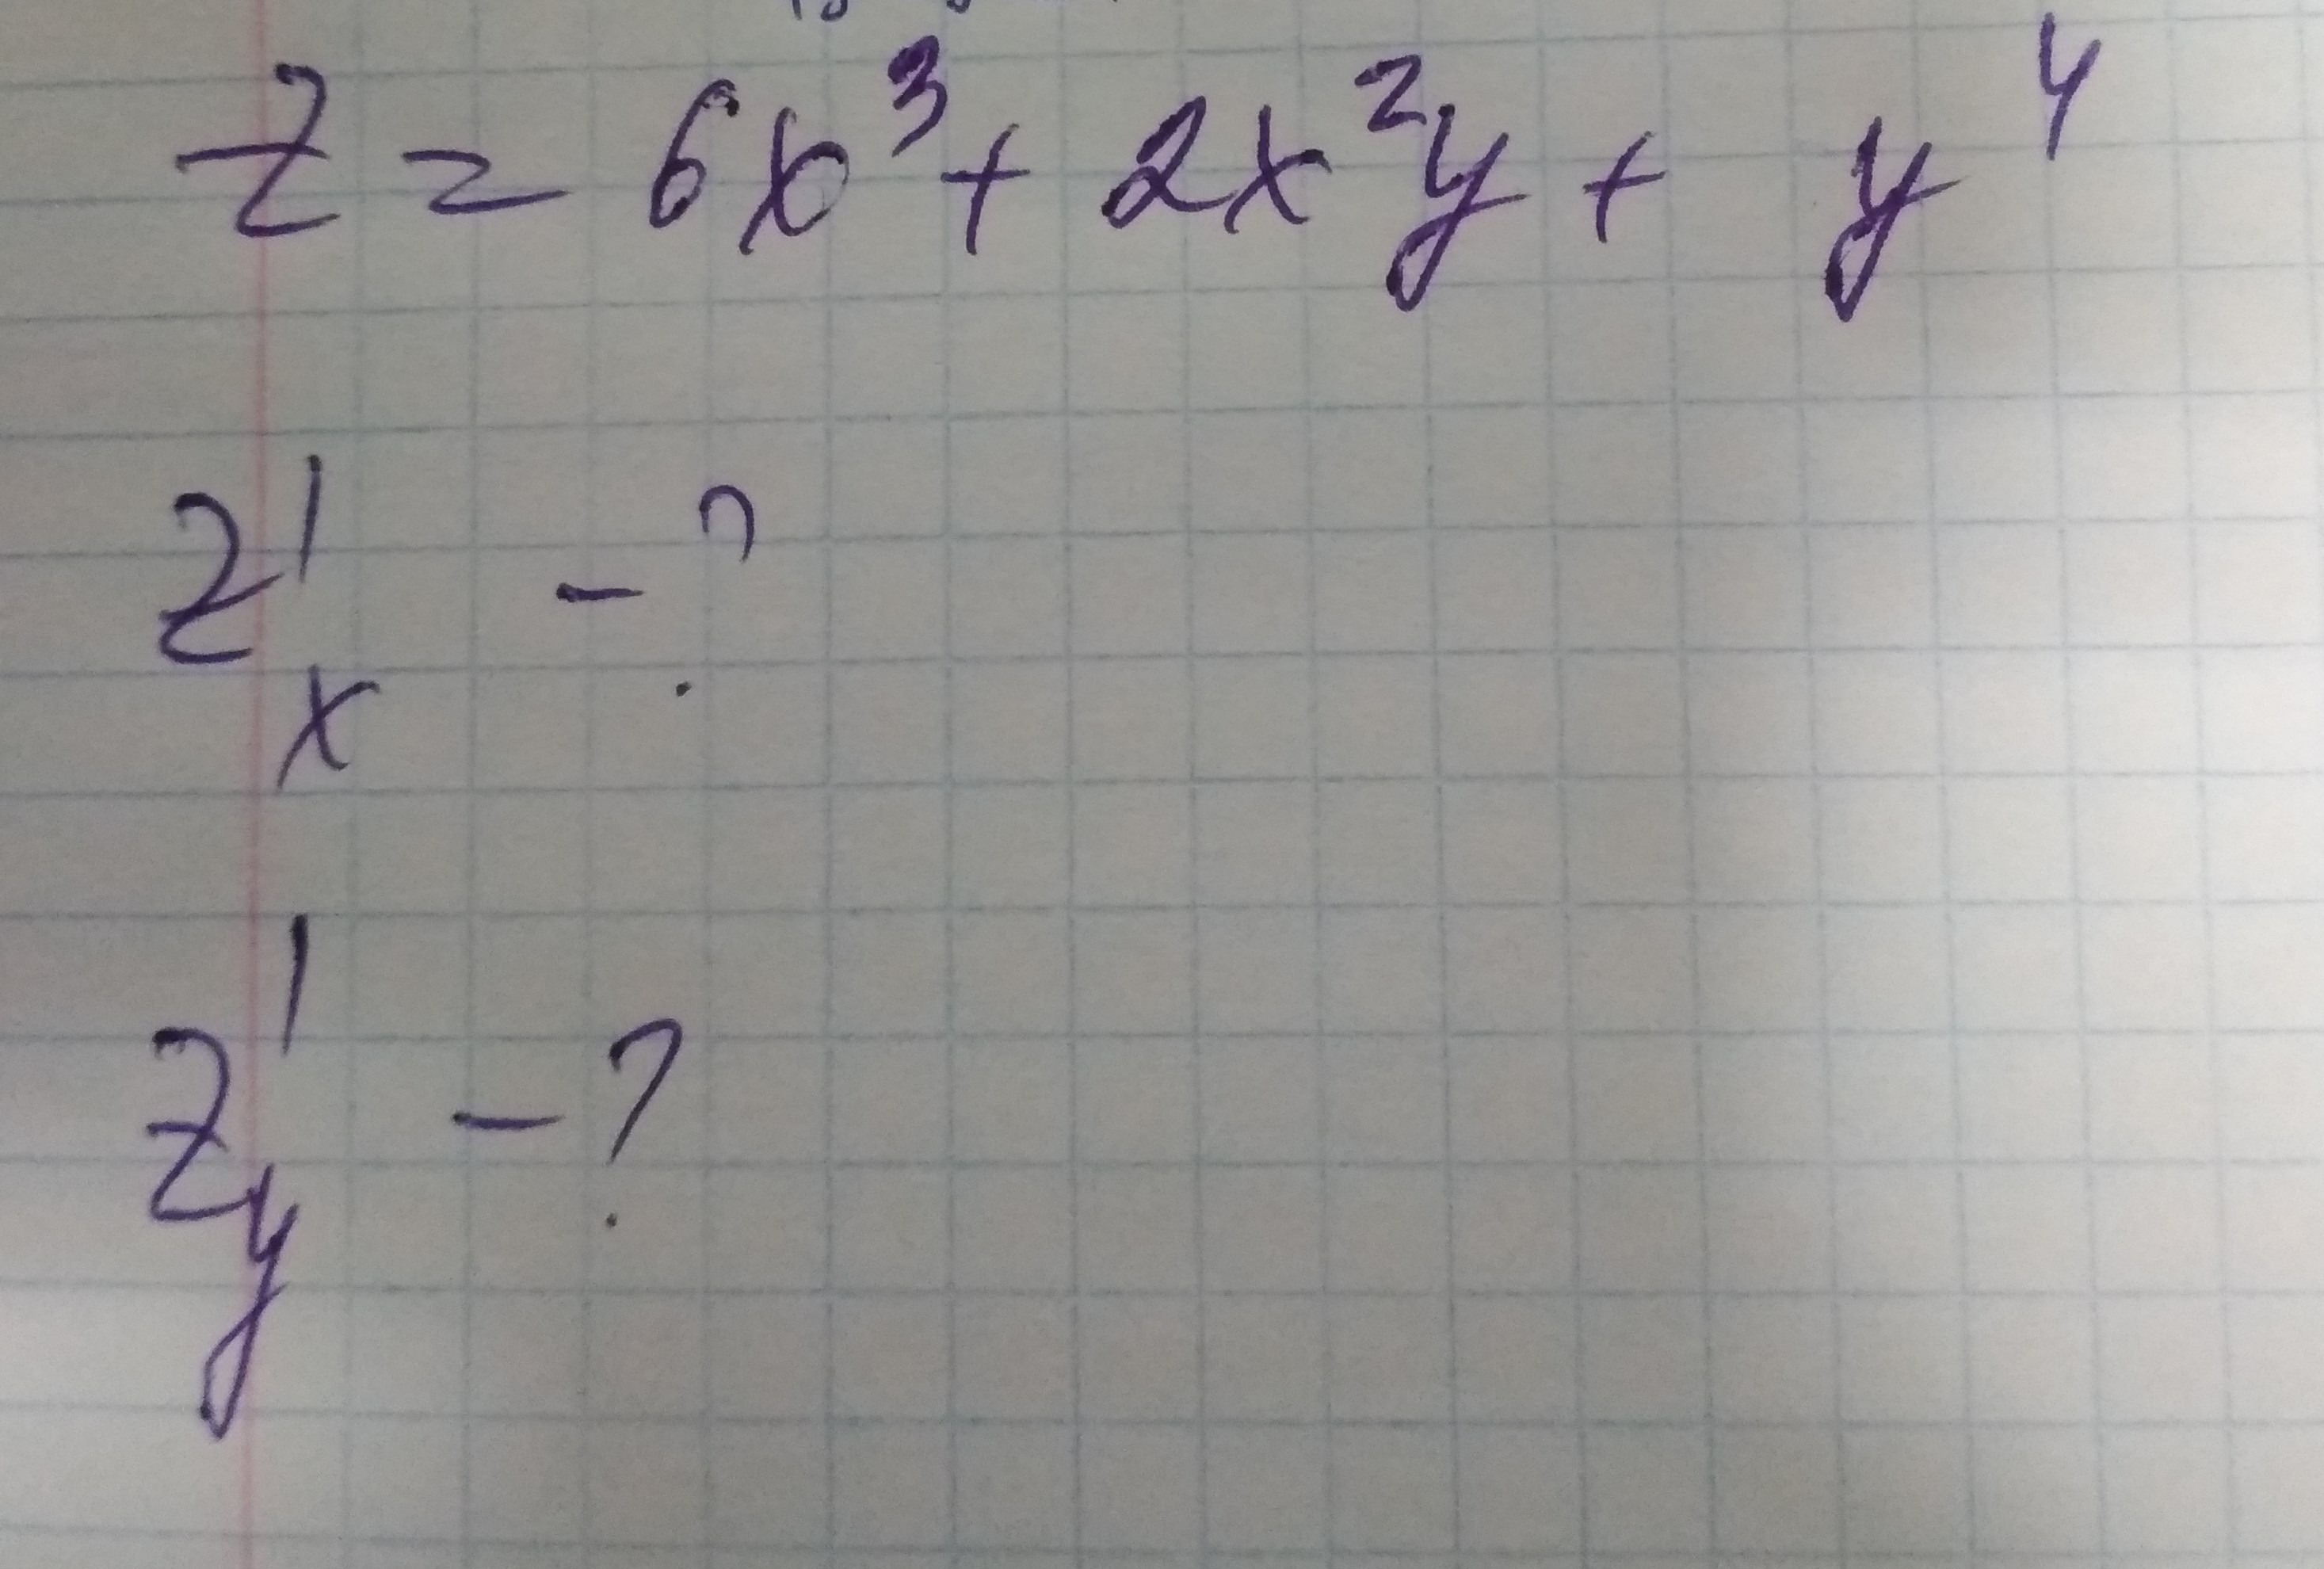 z = 6x³ + 2x²y + y⁴
z'ₓ - ?
z'_y - ?